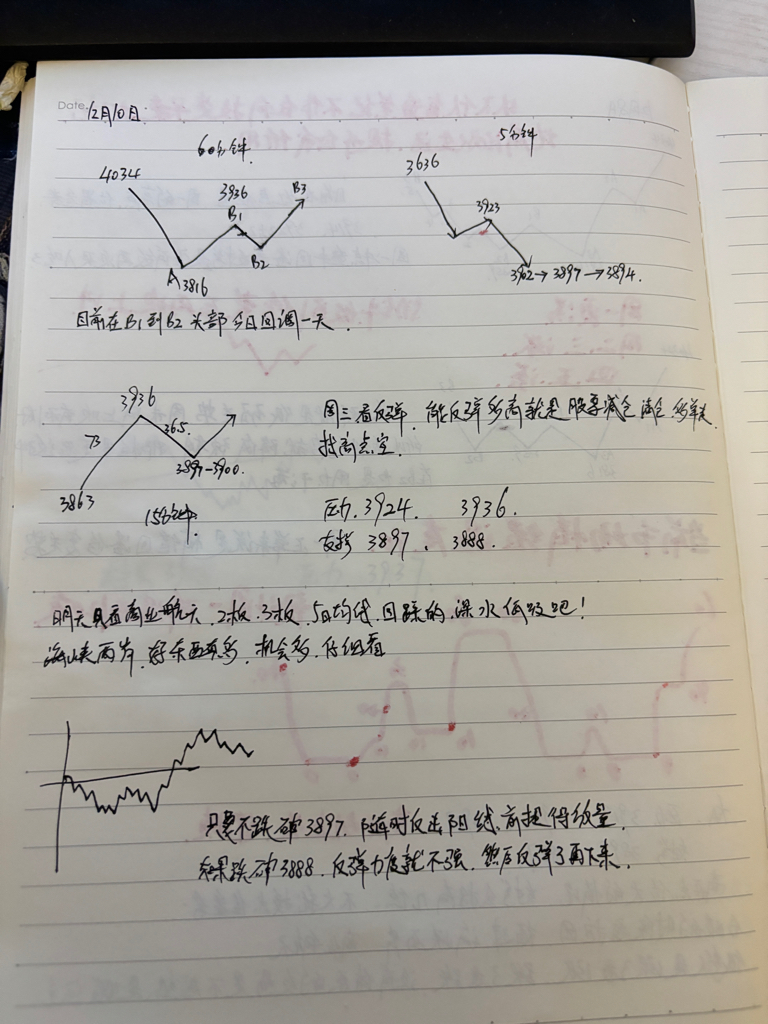 Date.
12月10日
60分钟.
5分钟
4034
3936
B1
B3
B2
A
3816
3636
3923
3902→3897→3894.
目前在B1到B2 头部今日回调一天.
3936
73
36.5
3863
3897-3900.
15分钟.
周三看反弹. 能反弹多高就是股票减仓 清仓
找高点空.
压力. 3924. 3936.
支撑 3897. 3888.
明天只看商业航天. 2板. 3板. 5日均线. 回踩的. 深水低吸吧!
海峡两岸. 好东西有多. 机会多. 仔细看
只要不跌破3897. 随时反击阳线. 前提得放量.
如果跌破3888. 反弹力度就不强. 然后反弹了再下来.